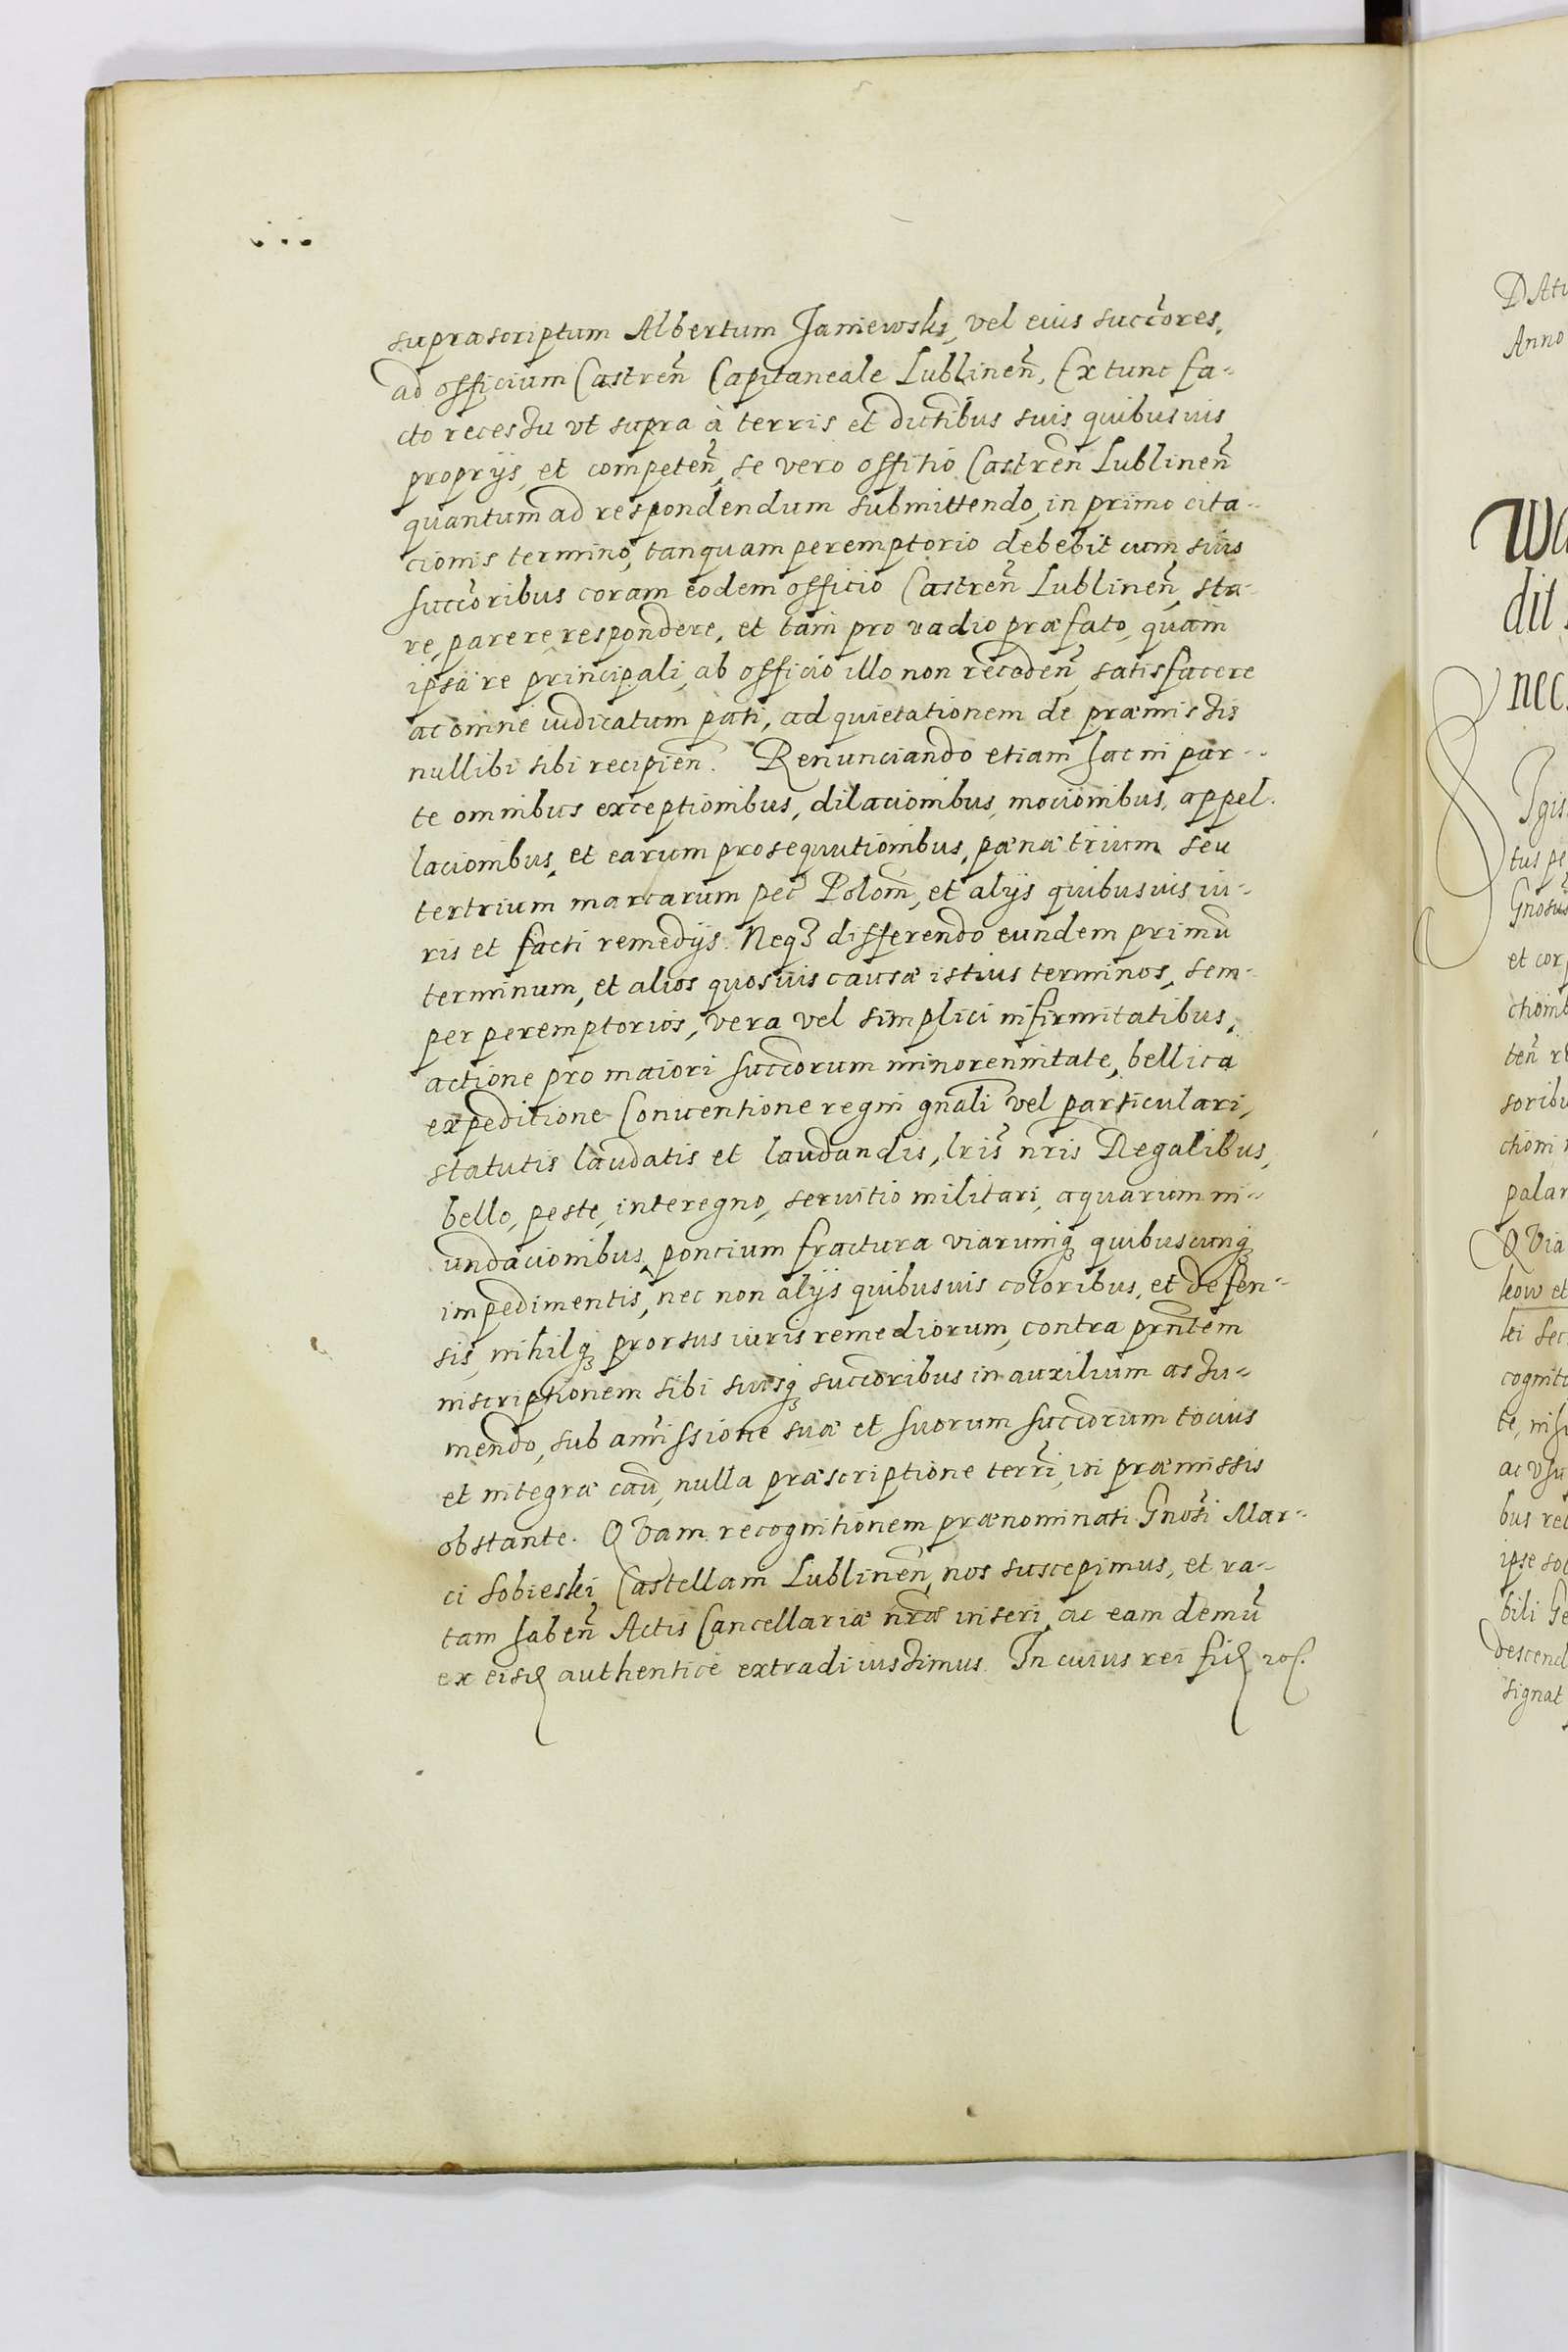 supræscriptum Albertum Janiewski, vel eius succ̃ores,
ad officium Castreñ Capitaneale Lublineñ, Ex tunc fa-
cto recessu vt supra à terris et dictibus suis quibusuis
proprijs, et competeñ, se vero offitio Castreñ Lublineñ
quantum ad respondendum submittendo, in primo cita-
cionis termino, tanquam peremptorio debebit cum suis
succ̃oribus coram eodem officio Castreñ Lublineñ, sta-
re, parere, respondere, et tam pro vadio præfato, quam
ipsa re principali, ab officio illo non recedeñ satisfacere
ac omne iudicatum pati, ad quietationem de præmissis
nullibi sibi recipieñ. Renunciando etiam hac in par-
te omnibus exceptionibus, dilacionibus, mocionibus, appel-
lacionibus, et earum prosequutionibus, pænæ trium seu
ter trium marcarum pec̃ Poloñ, et alijs quibusuis iu-
ris et facti remedijs. Neqꝫ differendo eundem primũ
terminum, et alios quosuis causæ istius terminos, sem-
per peremptorios, vera vel simplici infirmitatibus,
actione pro maiori succ̃orum minorennitate, bellica
expeditione Conuentione regni gñali vel particulari,
statutis laudatis et laudandis, lr̃is nr̃is Regalibus,
bello, peste, interegno, seruitio militari, aquarum in-
undacionibus, poncium fractura viarumqꝫ quibuscunqꝫ
impedimentis, nec non alijs quibusuis coloribus, et defen-
sis, nihilqꝫ prorsus iuris remediorum, contra prñtem
inscriptionem sibi suisqꝫ succ̃oribus in auxilium assu-
mendo, sub amissione suæ et suorum succ̃orum tocius
et integræ cau͠, nulla præscriptione terr̃i, in præmissis
obstante. QVam recognitionem prænominati Gnõsi Mar-
ci Sobieski Castellani Lublineñ, nos suscepimus, et ra-
tam habeñ Actis Cancellariæ nr̃æ inseri, ac eam demũ
ex eisd͠ authentice extradi iussimus. In cuius rei fid͠
DAtu
Anno
dit
nec
tus pe
Gnosus
et cor
soribu
palar
QVia
kow et
ki
cognit
te,
bus rec
ipse
bili Ge
descend
signat